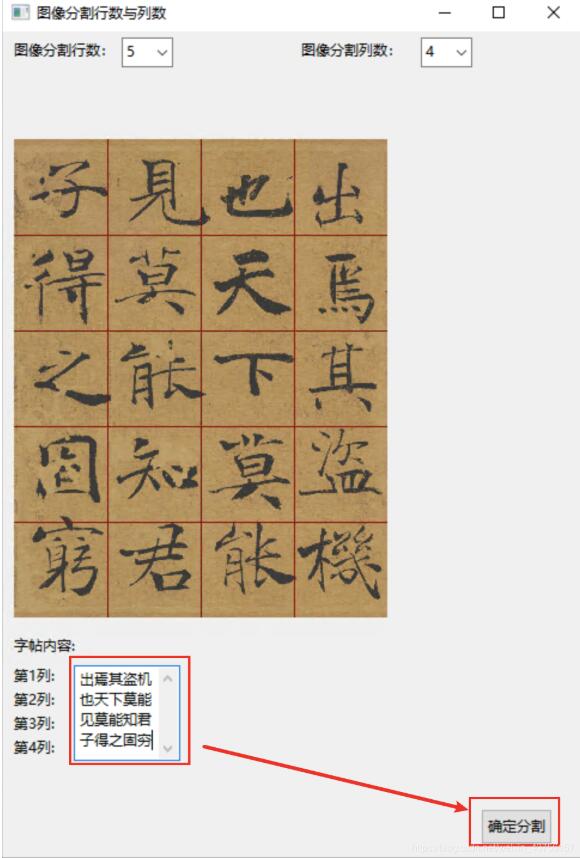 图像分割行数与列数
图像分割行数： 5 图像分割列数： 4
子 見 也 出
得 莫 天 焉
之 能 下 其
固 知 莫 盜
窮 君 能 機
字帖内容:
第1列: 出焉其盗机
第2列: 也天下莫能
第3列: 见莫能知君
第4列: 子得之固穷
确定分割